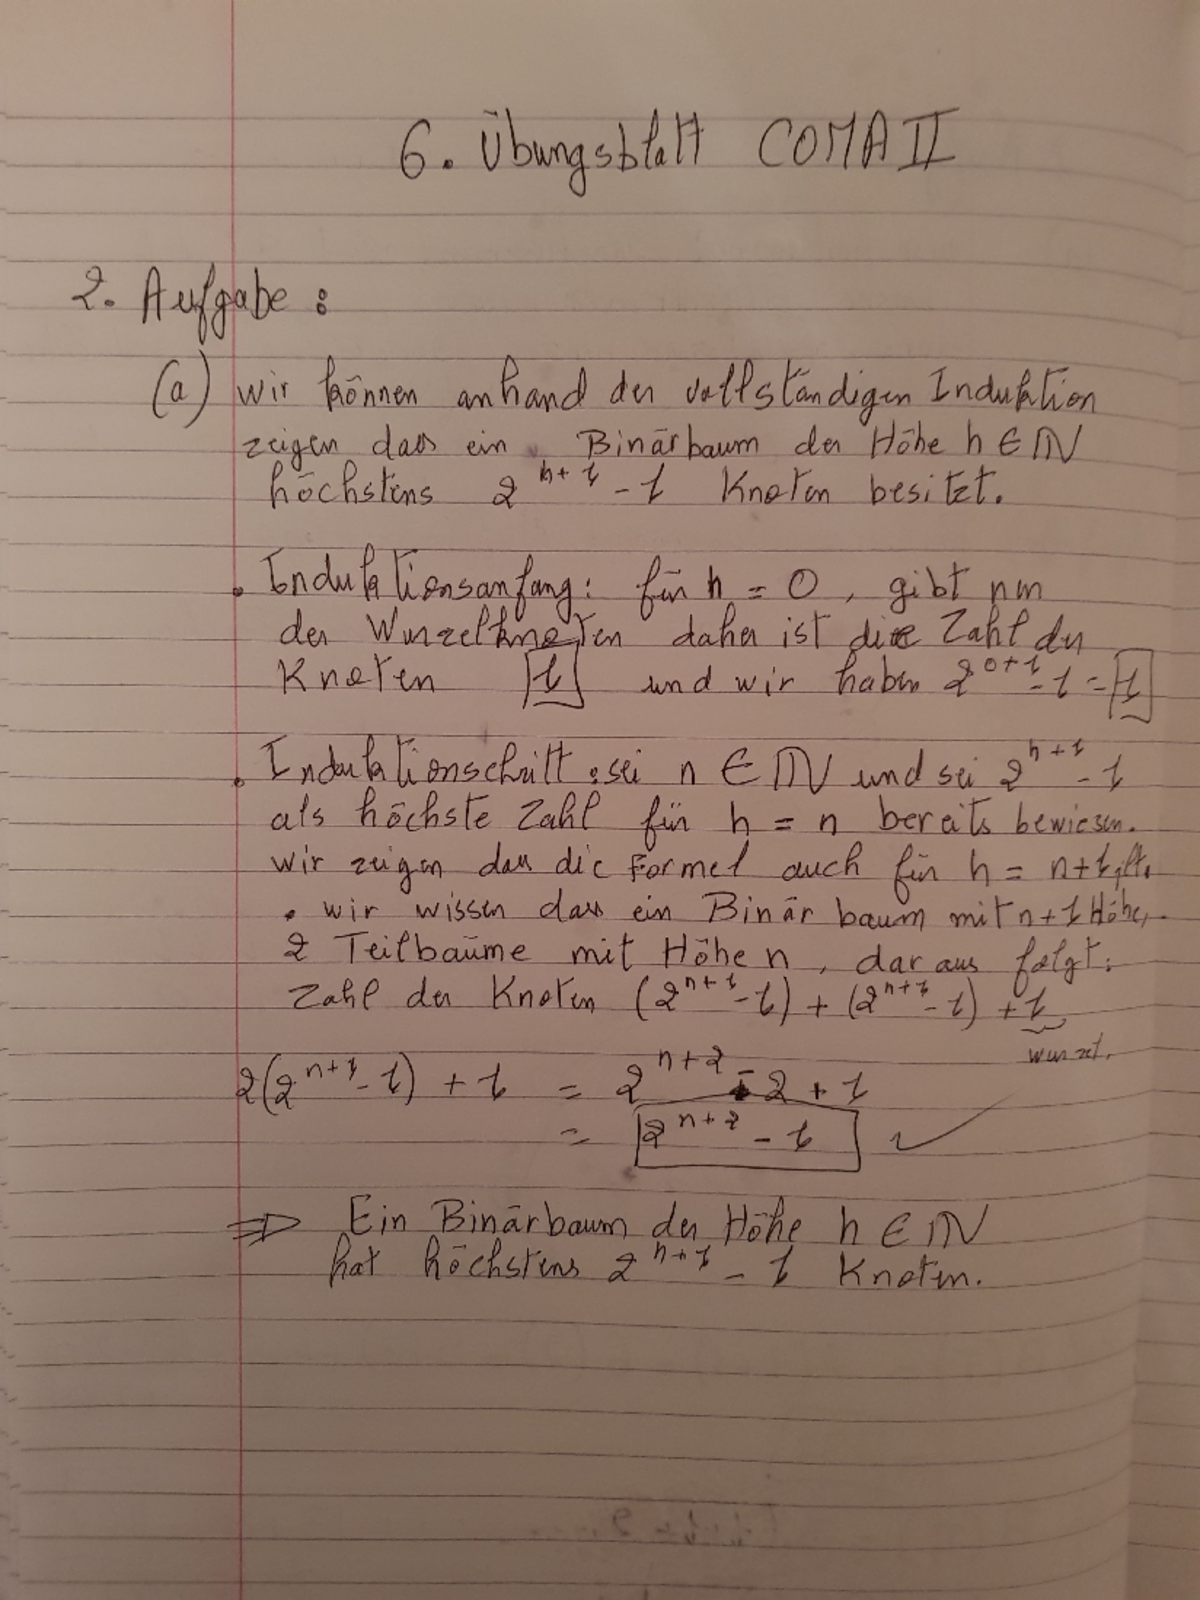 6. Übungsblatt COMA II
2. Aufgabe :
(a) wir können anhand der vollständigen Induktion
zeigen dass ein Binärbaum der Höhe h ∈ ℕ
höchstens 2^{h+1} - 1 Knoten besitzt.
. Induktionsanfang: für h = 0, gibt nur
der Wurzelknoten daher ist die Zahl der
Knoten 1 und wir haben 2^{0+1} - 1 = 1
. Induktionschritt : sei n ∈ ℕ und sei 2^{h+1} - 1
als höchste Zahl für h = n bereits bewiesen.
wir zeigen dass die Formel auch für h = n+1 gilt.
. wir wissen dass ein Binär baum mit n+1 Höhe,
2 Teilbaüme mit Höhe n, daraus folgt:
Zahl der Knoten (2^{n+1} - 1) + (2^{n+1} - 1) + 1
wurzel.
2(2^{n+1} - 1) + 1 = 2^{n+2} - 2 + 1
= 2^{n+2} - 1 ✓
⇒ Ein Binärbaum der Höhe h ∈ ℕ
hat höchstens 2^{h+1} - 1 Knoten.